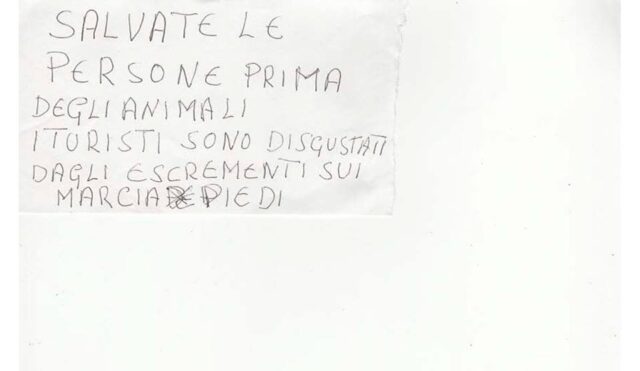 SALVATE LE
PERSONE PRIMA
DEGLI ANIMALI
I TURISTI SONO DISGUSTATI
DAGLI ESCREMENTI SUI
MARCIAPIEDI